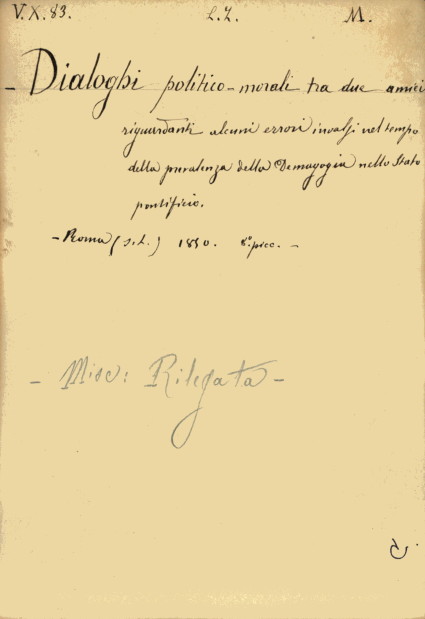 V. X. 83. L. Z. M.
- Dialoghi politico-morali tra due amici
riguardanti alcuni errori invalsi nel tempo
della prevalenza della Demagogia nello Stato
pontificio.
- Roma (s.t.) 1850. 8.° picc. -
- Misc: Rilegata -